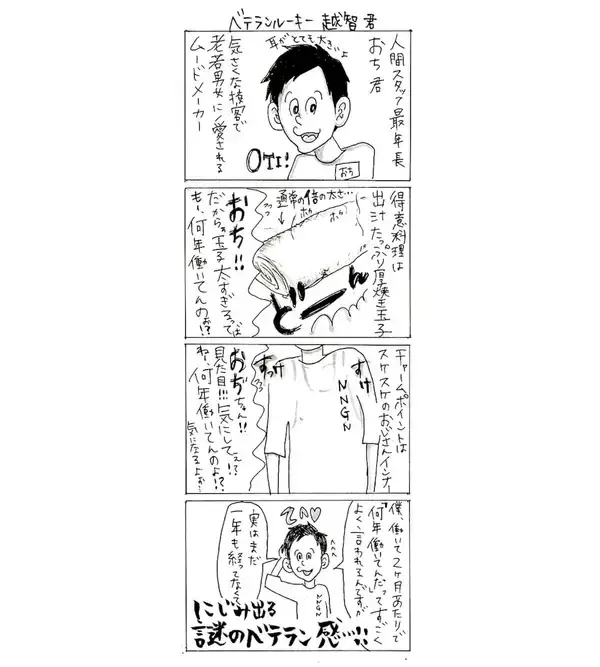 ベテランルーキー 越智君
人間スタッフ最年長
おち君
耳がとても大きいよ
気さくな接客で
老若男女に愛される
ムードメーカー
OTI!
おち
得意料理は
出汁たっぷり厚焼き玉子
通常の倍の太さ…
ホカ
ホカ
どーん
おち!!
だからぁ玉子太すぎるってば
もー、何年働いてんのぉ!?
チャームポイントは
スケスケのおじさんインナー
すけ
すっけ
NNGN
おぢちゃん!!
見た目!!!気にしてぇ!?
ねぇ、何年働いてんのよ!?
気になるよぉ…
僕、働いて2ヶ月あたりで
「何年働いてんだ」ってすごく
よく言われるんですが
てへ♡
実はまだ
一年も経ってなくて
NNGN
にじみ出る
謎のベテラン感…!!